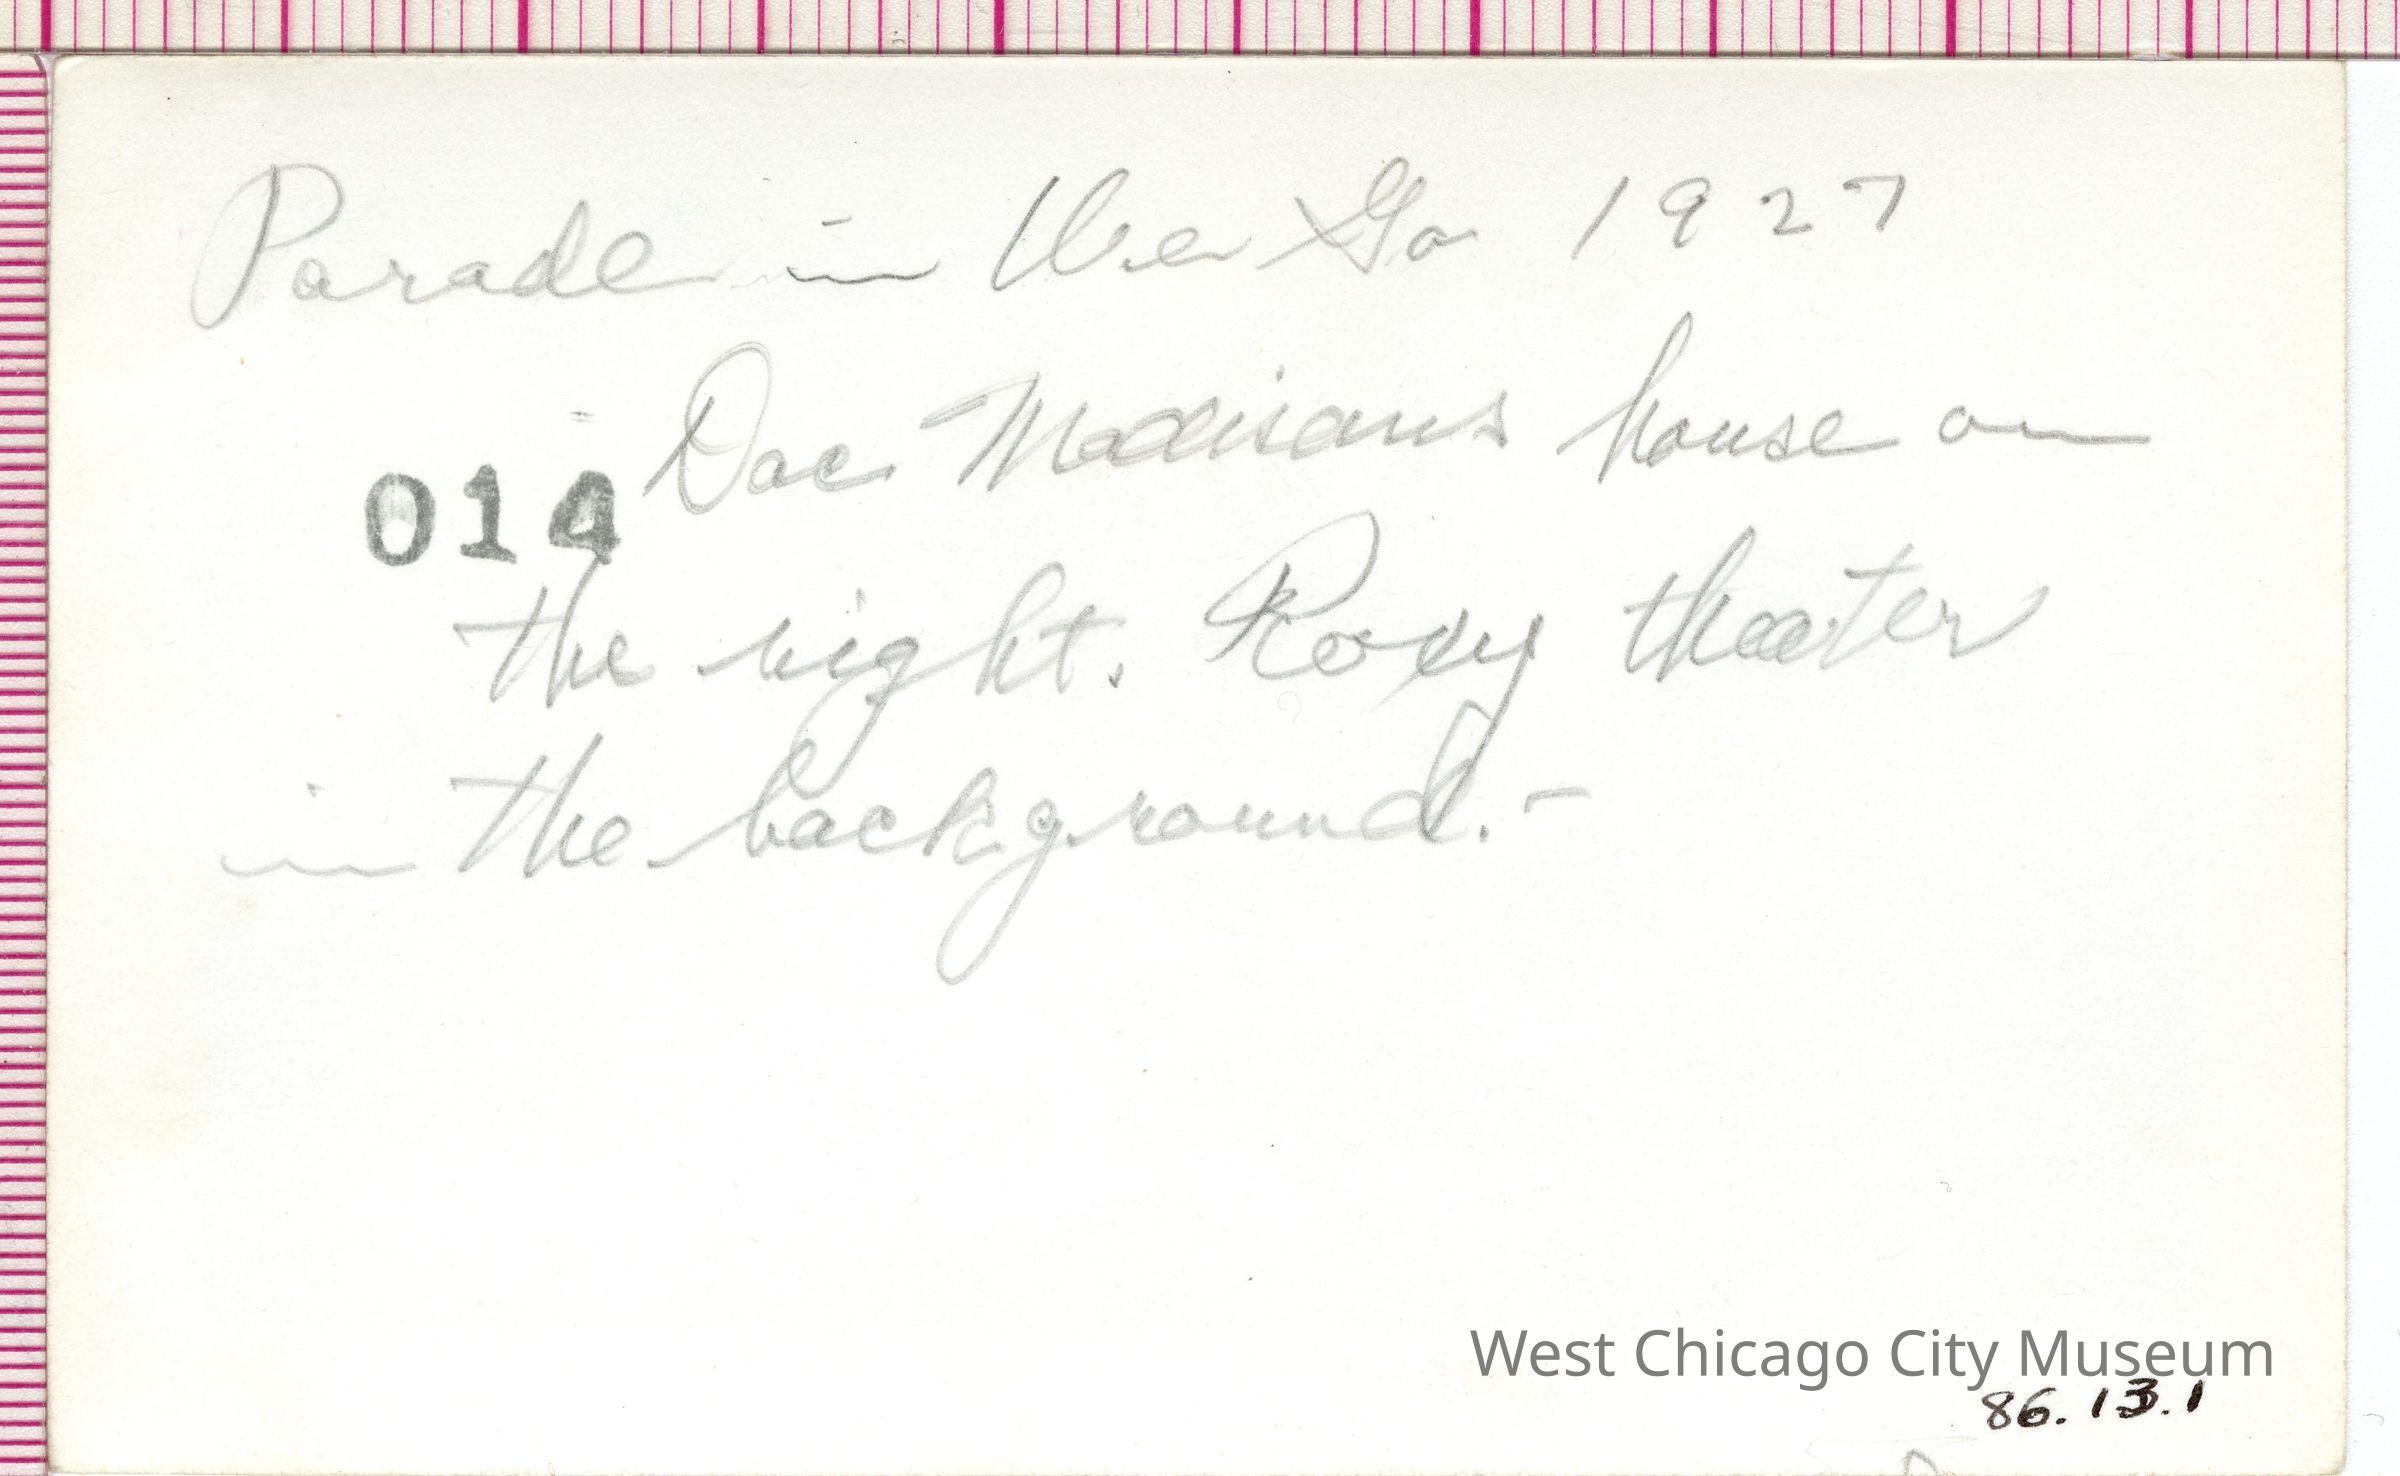 Parade in We Go 1927
Doc Madisons house on
014
the right. Roxy theater
in the background. -
West Chicago City Museum
86.13.1